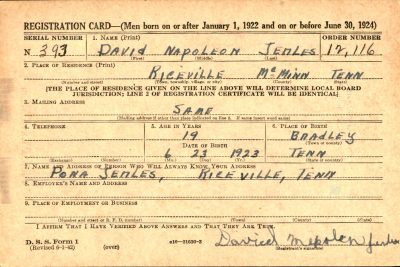 REGISTRATION CARD—(Men born on or after January 1, 1922 and on or before June 30, 1924)
SERIAL NUMBER 1. NAME (Print) ORDER NUMBER
N 393 DAVID NAPOLEON JEMLES 12,116
(First) (Middle) (Last)
2. PLACE OF RESIDENCE (Print)
RICEVILLE McMINN TENN
(Number and street) (Town, township, village, or city) (County) (State)
[THE PLACE OF RESIDENCE GIVEN ON THE LINE ABOVE WILL DETERMINE LOCAL BOARD
JURISDICTION; LINE 2 OF REGISTRATION CERTIFICATE WILL BE IDENTICAL]
3. MAILING ADDRESS
SAME
(Mailing address if other than place indicated on line 2. If same insert word same)
4. TELEPHONE 5. AGE IN YEARS 6. PLACE OF BIRTH
19 BRADLEY
DATE OF BIRTH (Town or county)
6 23 1923 TENN
(Exchange) (Number) (Mo.) (Day) (Yr.) (State or country)
7. NAME AND ADDRESS OF PERSON WHO WILL ALWAYS KNOW YOUR ADDRESS
PONA JEMLES, RICEVILLE, TENN
8. EMPLOYER'S NAME AND ADDRESS
9. PLACE OF EMPLOYMENT OR BUSINESS
(Number and street or R. F. D. number) (Town) (County) (State)
I AFFIRM THAT I HAVE VERIFIED ABOVE ANSWERS AND THAT THEY ARE TRUE.
D. S. S. Form 1
(Revised 6-1-42) (over) 16—21630-2 David
(Registrant's signature)